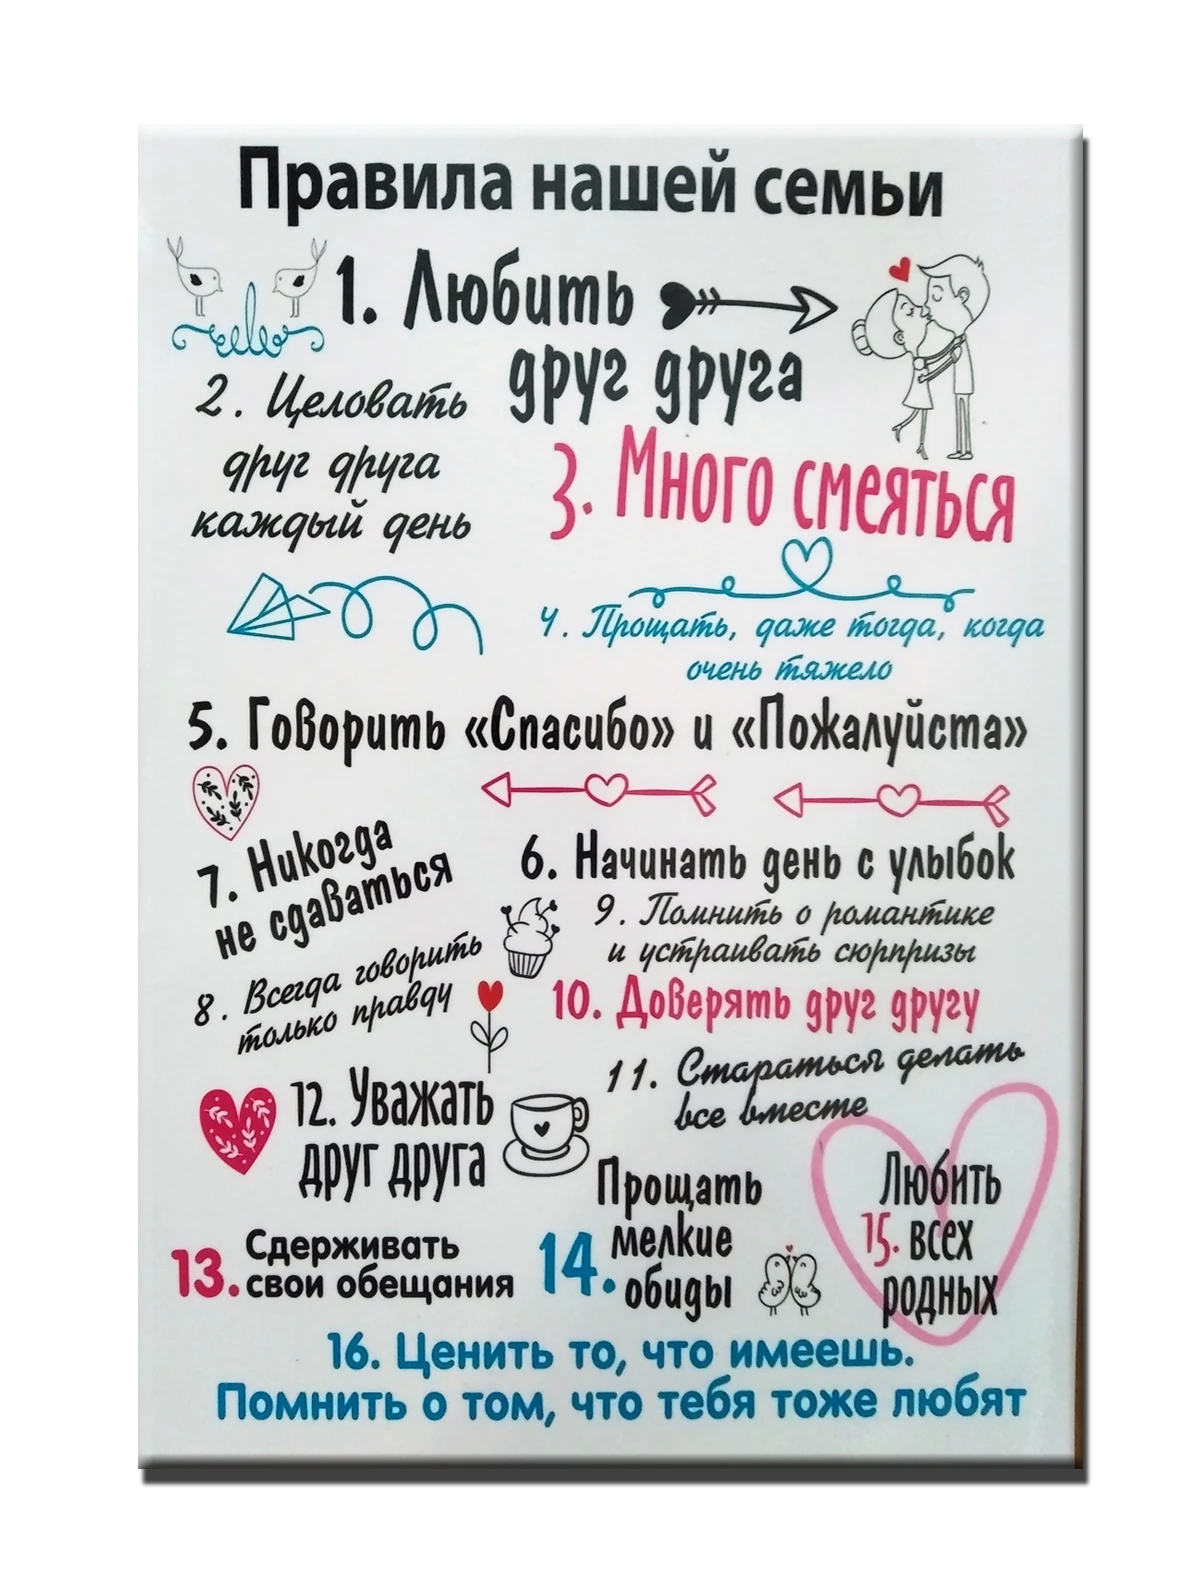 Правила нашей семьи
1. Любить
друг друга
2. Целовать
друг друга
каждый день
3. Много смеяться
4. Прощать, даже тогда, когда
очень тяжело
5. Говорить «Спасибо» и «Пожалуйста»
6. Начинать день с улыбок
7. Никогда
не сдаваться
8. Всегда говорить
только правду
9. Помнить о романтике
и устраивать сюрпризы
10. Доверять друг другу
11. Стараться делать
все вместе
12. Уважать
друг друга
13. Сдерживать
свои обещания
14. Прощать
мелкие
обиды
Любить
15. всех
родных
16. Ценить то, что имеешь.
Помнить о том, что тебя тоже любят